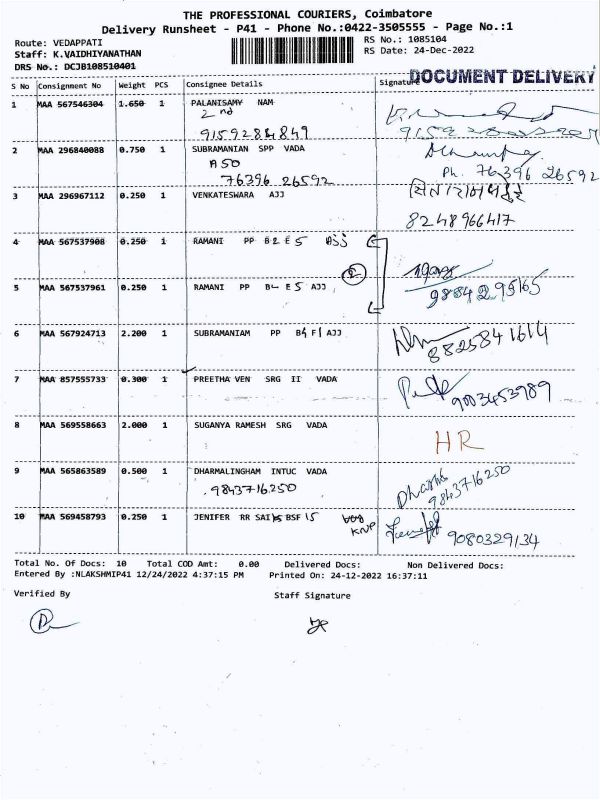 THE PROFESSIONAL COURIERS, Coimbatore
Delivery Runsheet - P41 - Phone No.:0422-3505555 - Page No.:1
Route: VEDAPPATI
RS No.: 1085104
Staff: K.VAIDHIYANATHAN
RS Date: 24-Dec-2022
DRS No.: DCJB108510401
DOCUMENT DELIVERY
S No Consignment No Weight PCS Consignee Details Signature
1 MAA 567546304 1.650 1 PALANISAMY NAM
2nd
9159284849
2 MAA 296840088 0.750 1 SUBRAMANIAN SPP VADA
A50
76396 26592
Ph. 76396 26592
3 MAA 296967112 0.250 1 VENKATESWARA AJJ
8248966417
4 MAA 567537908 0.250 1 RAMANI PP B2 E5 AJJ
2
5 MAA 567537961 0.250 1 RAMANI PP B- E5 AJJ
98842 95165
6 MAA 567924713 2.200 1 SUBRAMANIAM PP B4 F1 AJJ
8825841614
7 MAA 857555733 0.300 1 PREETHA VEN SRG II VADA
9003453989
8 MAA 569558663 2.000 1 SUGANYA RAMESH SRG VADA
HR
9 MAA 565863589 0.500 1 DHARMALINGHAM INTUC VADA
9843716250
9843716250
10 MAA 569458793 0.250 1 JENIFER RR SAI BSF 15
KNP
9080329134
Total No. Of Docs: 10 Total COD Amt: 0.00 Delivered Docs: Non Delivered Docs:
Entered By :NLAKSHMIP41 12/24/2022 4:37:15 PM Printed On: 24-12-2022 16:37:11
Verified By Staff Signature